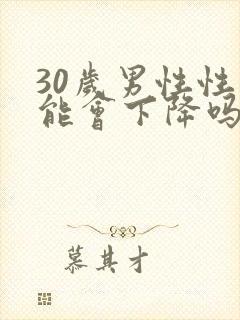 30歲男性性
能會下降嗎
慕其才